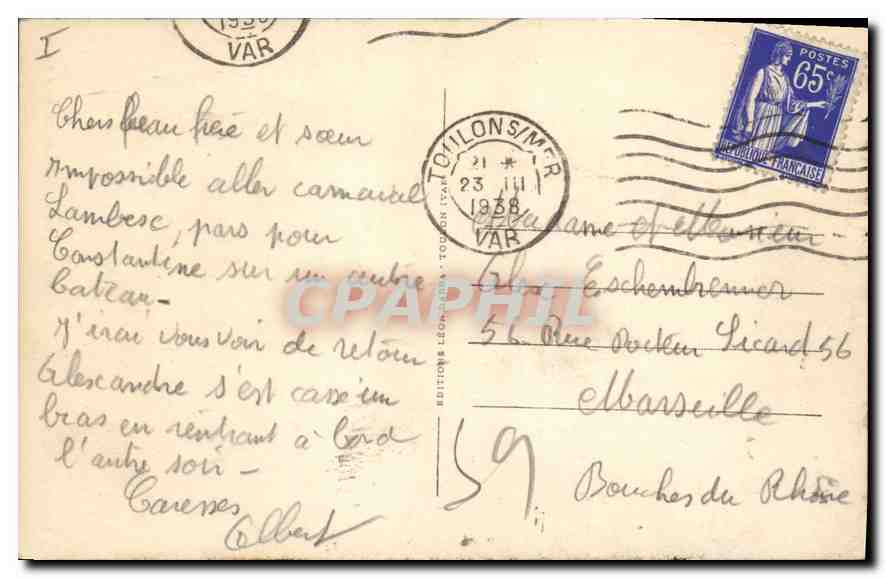 I
1938
VAR
Chers beau frère et sœur
Impossible aller carnaval
Lambesc, pars pour
Constantine sur un autre
bateau -
J'irai vous voir de retour
Alexandre s'est cassé un
bras en rentrant à bord
l'autre soir -
Caresses
Albert
EDITIONS LÉON DARRA - TOULON (VAR)
TOULON S/MER
21 *
23 III
1938
VAR
POSTES
65c
REPUBLIQUE FRANÇAISE
Madame et Monsieur
Alex Eschembrenner
56 Rue Docteur Sicard 56
Marseille
Bouches du Rhône
59
CPAPHIL